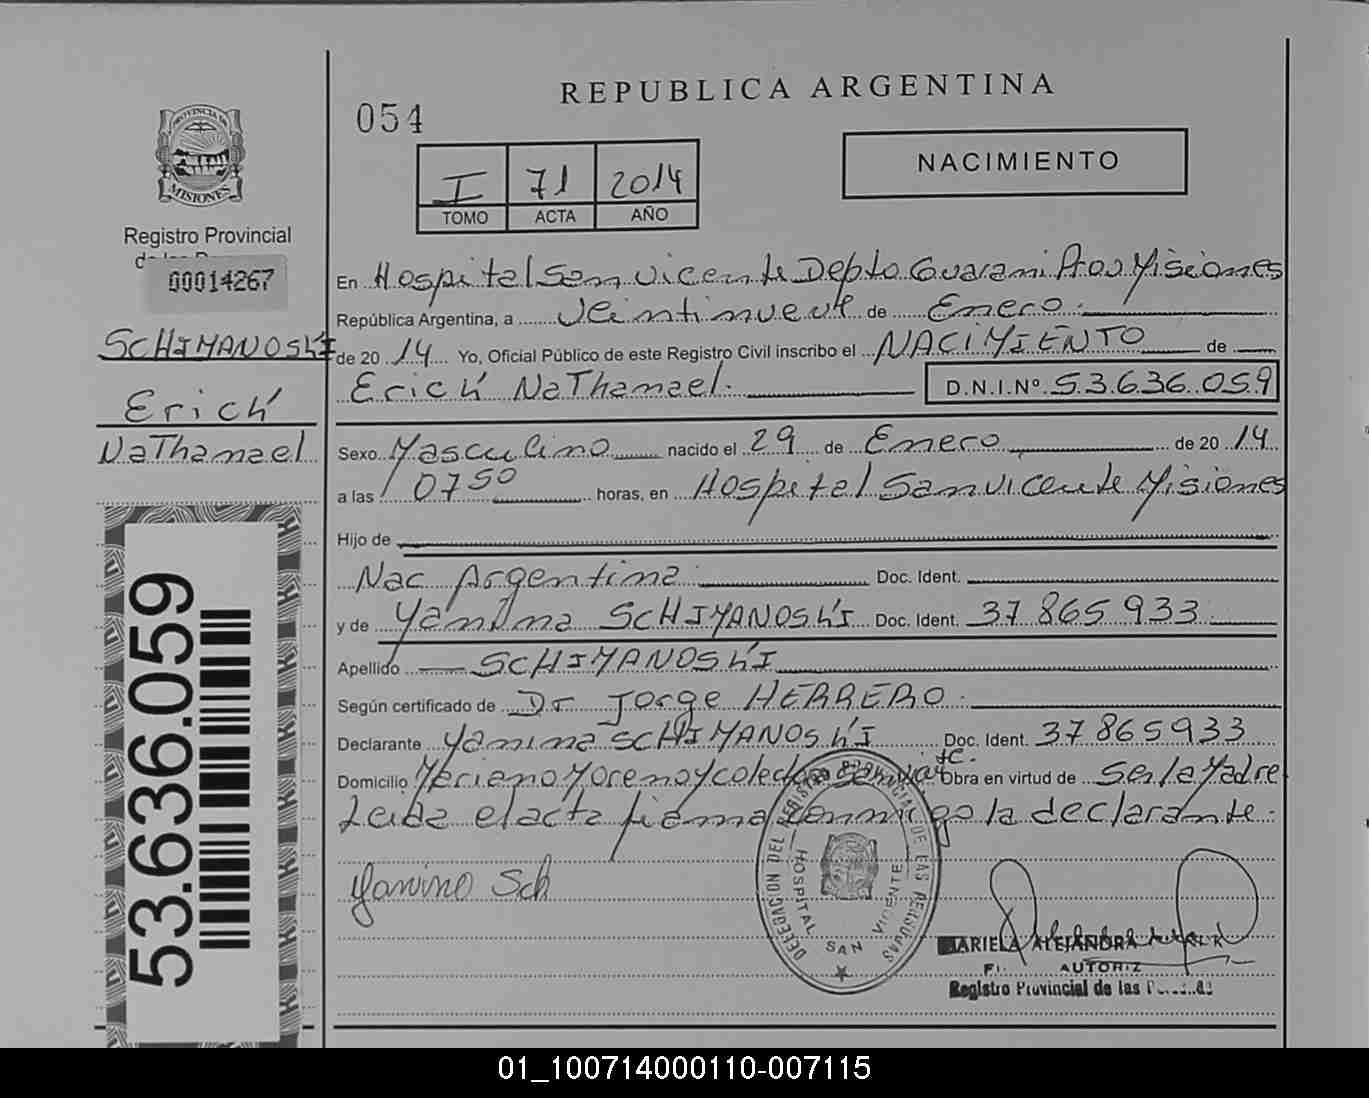 REPUBLICA ARGENTINA
054
I 71 2014
TOMO ACTA AÑO
NACIMIENTO
PROVINCIA DE
MISIONES
Registro Provincial
00014267
SCHIMANOSKI
Erick
NaThanael
53.636.059
En Hospital San Vicente Depto Guarani Prov Misiones
República Argentina, a Veintinueve de Enero
de 20 14 Yo, Oficial Público de este Registro Civil inscribo el NACIMIENTO de
Erick NaThanael. D.N.I.Nº 53.636.059
Sexo Masculino nacido el 29 de Enero de 20 14
a las 0750 horas, en Hospital San Vicente Misiones
Hijo de
Nac Argentina Doc. Ident.
y de Yanina SCHIMANOSKI Doc. Ident. 37 865 933
Apellido SCHIMANOSKI
Según certificado de Dr Jorge HERRERO
Declarante Yanina SCHIMANOSKI Doc. Ident. 37 865 933
Domicilio Mariano Moreno y Obra en virtud de Ser la Madre
Leida el acta firma conmigo la declarante.
Yanina Sch
DELEGACION DEL REGISTRO PROVINCIAL DE LAS PERSONAS
HOSPITAL SAN VICENTE
MARIELA ALEJANDRA
AUTORIZ
Registro Provincial de las
01_100714000110-007115